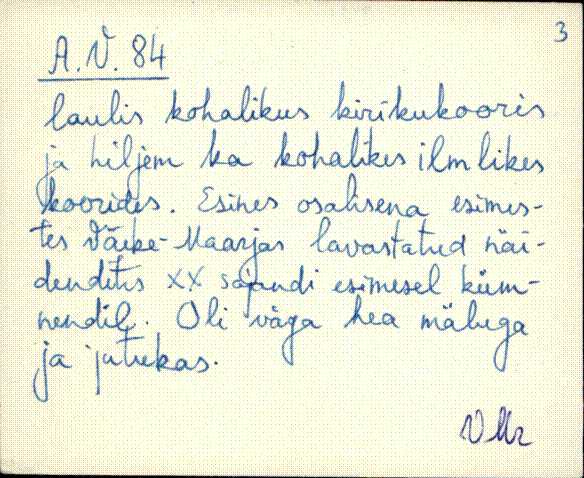 3
A.V. 84
laulis kohalikus kirikukooris
ja hiljem ka kohalikes ilmlikes
koorides. Esines osalisena esimes-
tes Väike-Maarjas lavastatud näi-
dendites XX sajandi esimesel küm-
nendil. Oli väga hea mäluga
ja jutukas.